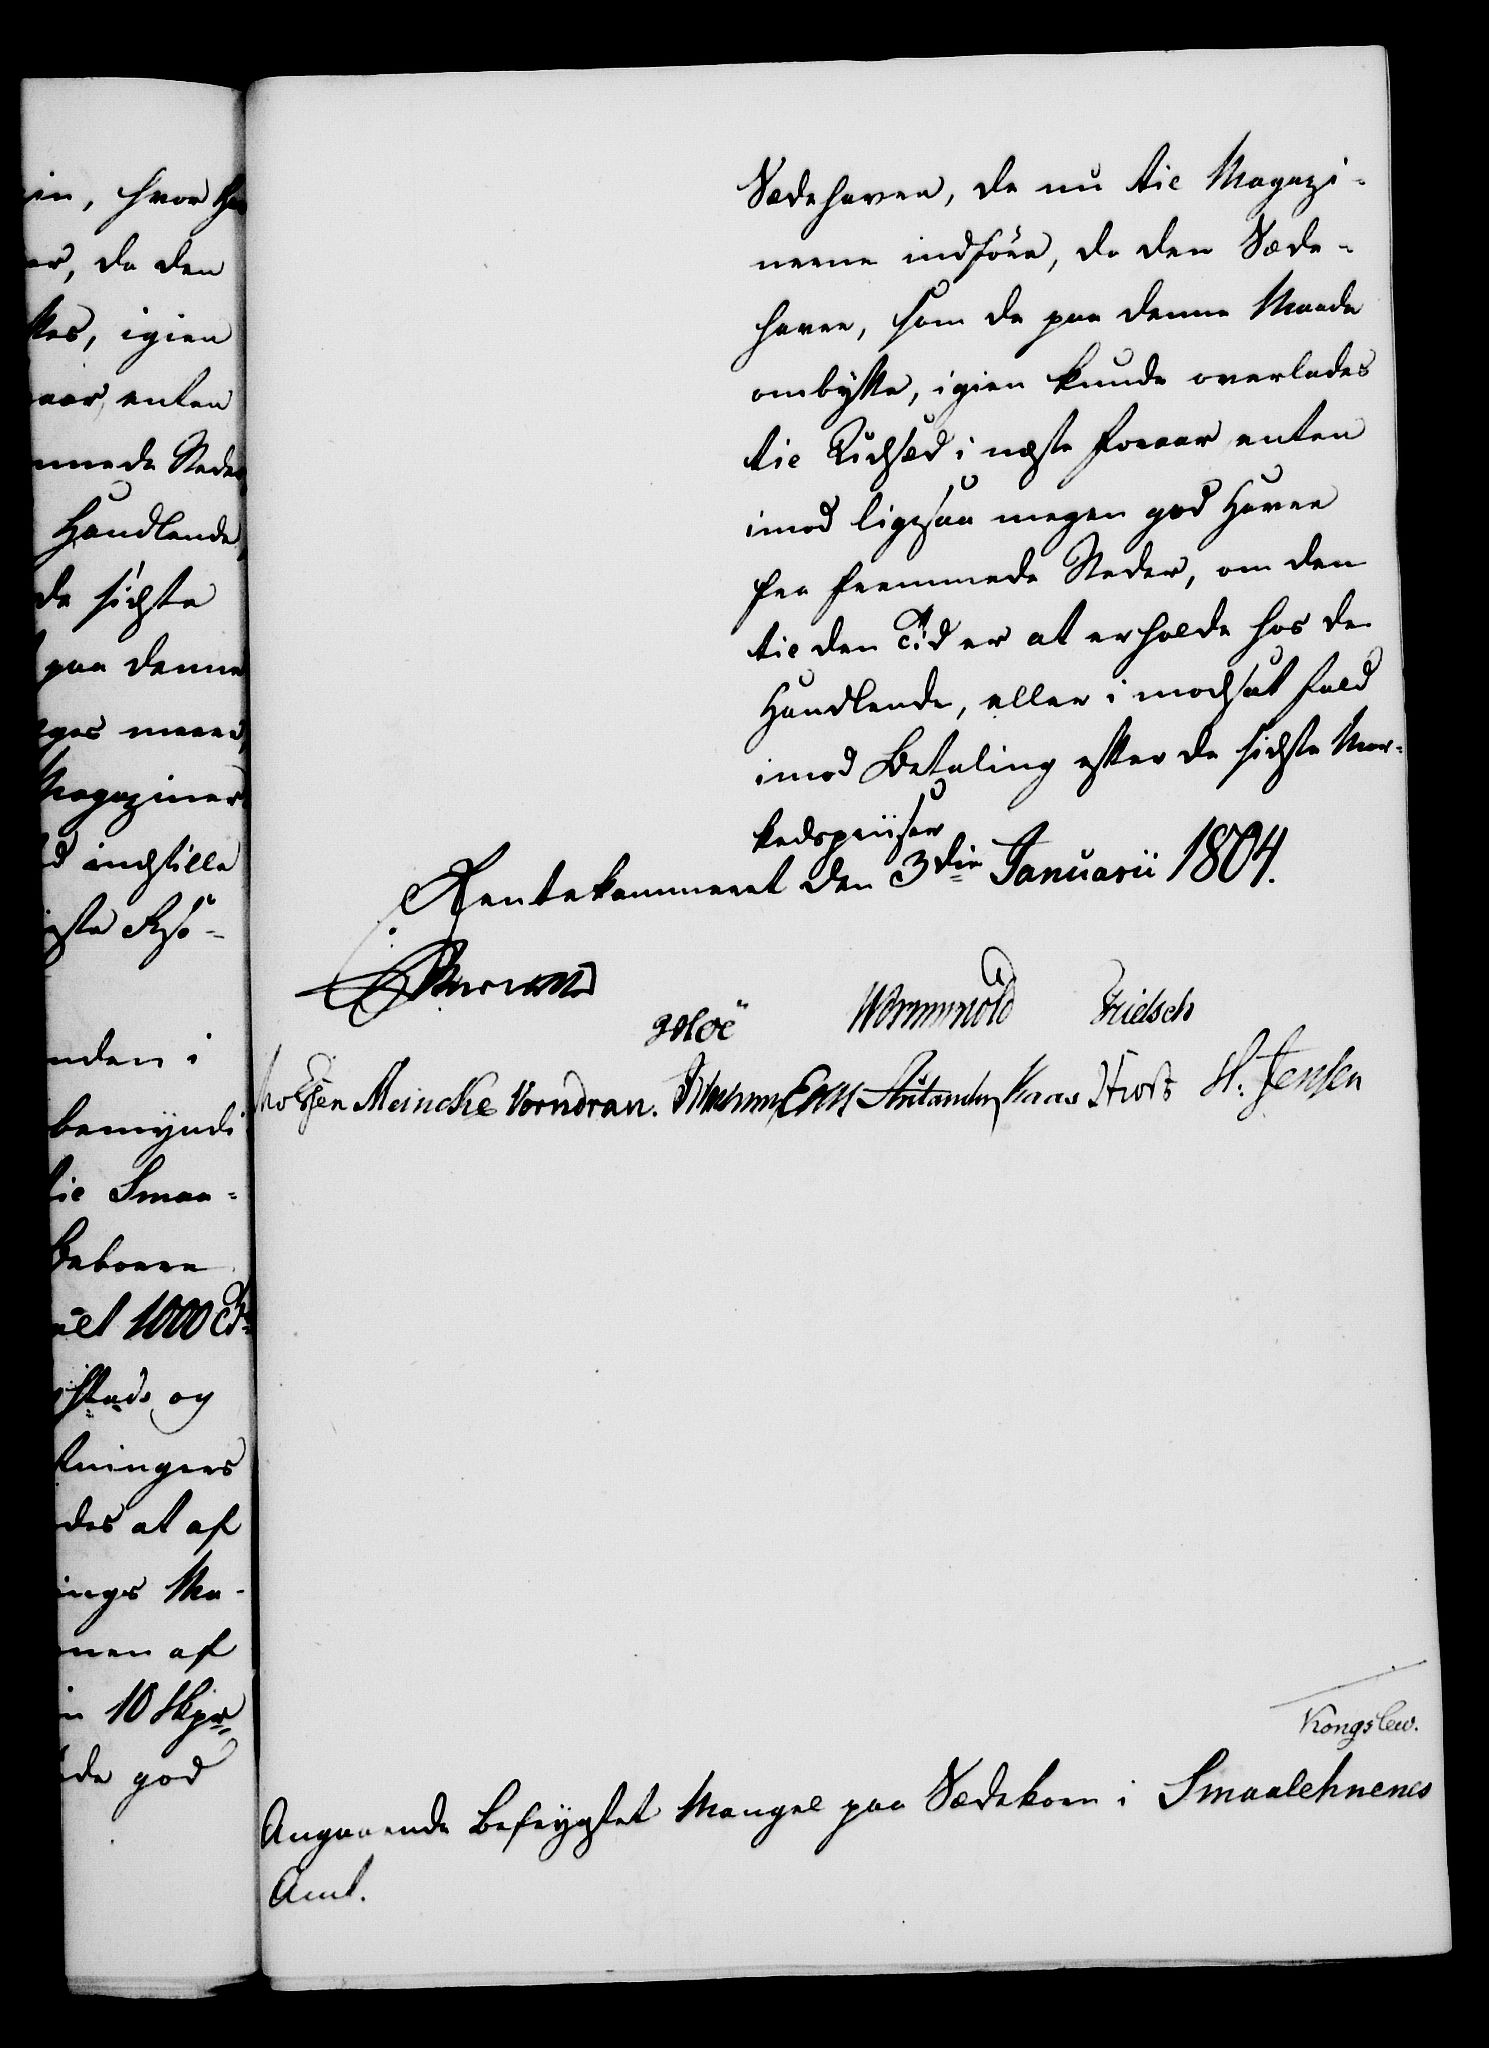 in, hvor
er, da den
kes, igien
aar, enten
mmede Steder,
Handlende,
de sidste
paa denne
ges meere,
Magaziner
d indstille
ste Resó-
nden i
bemyndi
til Smaa-
Beboere
et 1000 Tr
stads og
tningers
des at af
ings Ma-
nen af
in 10 Skpr,,
de god
Sædehavre, de nu til Magazi-
nerne indföre, da den Sæde-
havre, som de paa denne Maade
ombytte, igien kunde overlades
til Udsæd i næste Foraar enten
imod ligesaa megen god Havre
fra fremmede Steder, om den
til den Tid er at erholde hos de
Handlende, eller i modsat Fald
imod Betaling efter de sidste Mar-
kedspriiser
Rentekammeret den 3die Januarii 1804.
Wormskiold Fridsch
Meincke Vorndran. Kaas H. Jensen
Kongslew.
Angaaende befrygtet Mangel paa Sædekorn i Smaalehnenes
Amt.